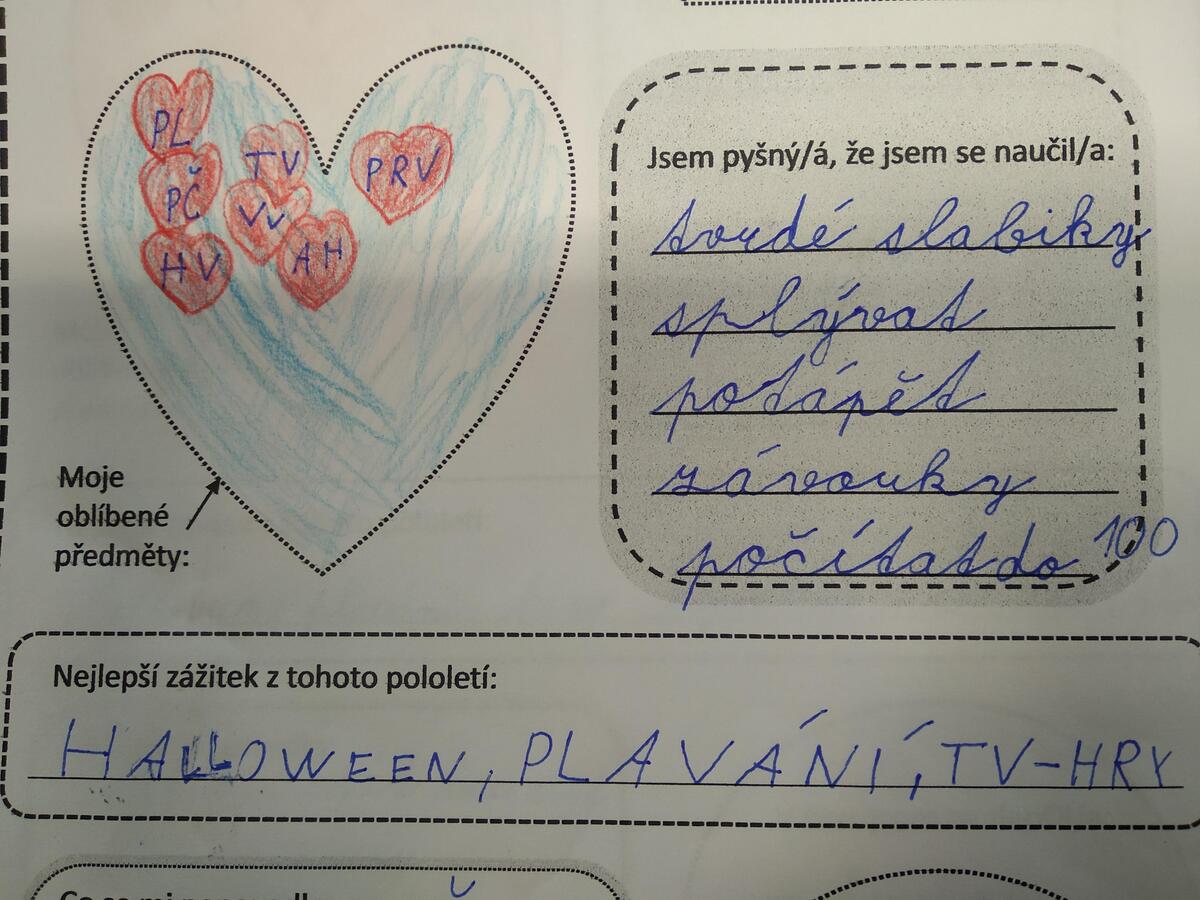 PL
TV
PRV
PČ
VV
HV
AH
Moje
oblíbené
předměty:
Jsem pyšný/á, že jsem se naučil/a:
tvrdé slabiky
splývat
potápět
závouky
počítat do 100
Nejlepší zážitek z tohoto pololetí:
HALLOWEEN, PLAVÁNÍ, TV-HRY